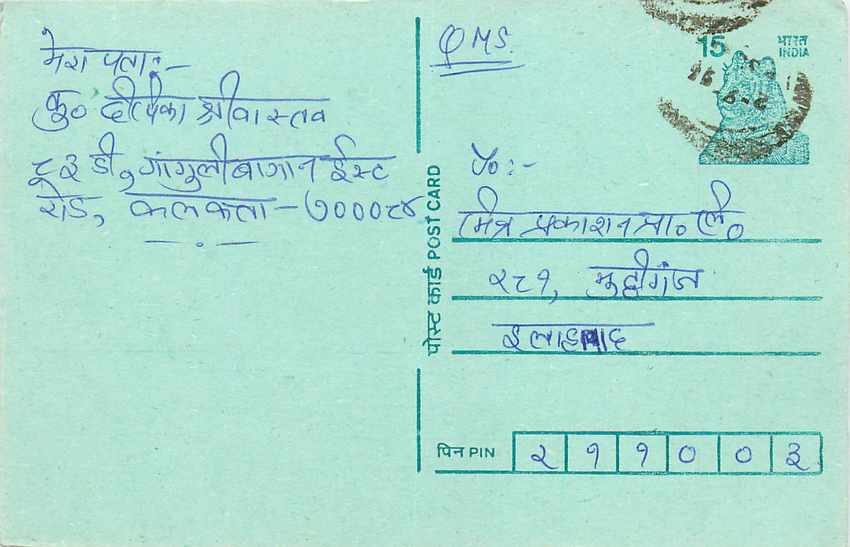 मेरा पता:-
कु० दीपिका श्रीवास्तव
८३ डी, गांगुलीबागान ईस्ट
रोड, कलकता - ७०००८४
QMS.
15
भारत
INDIA
To:-
मित्र प्रकाशन प्रा० लि०
२८१, मुट्ठीगंज
इलाहाबाद
पोस्ट कार्ड POST CARD
पिन PIN २ १ १ ० ० ३